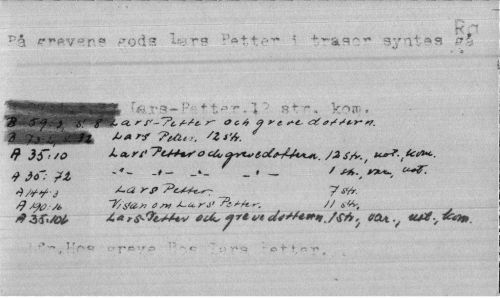 Rg
På grevens gods Lars Petter i trasor syntes gå
Lars-Petter. 12 str. kom.
B 59:2, s. 8 Lars-Petter och grevedottern.
A Lars Petter. 12 str.
A 35:10 Lars Petter och grevedottern. 12 str., not., kom.
A 35:72 -"- -"- -"- -"- 1 str., var., not.
A 144:3 Lars Petter. 7 str.
A 190:16 Visan om Lars Petter. 11 str.
A 35:106 Lars-Petter och grevedottern. 1 str., var., not., kom.
Jfr. Hos greve Lars Petter.